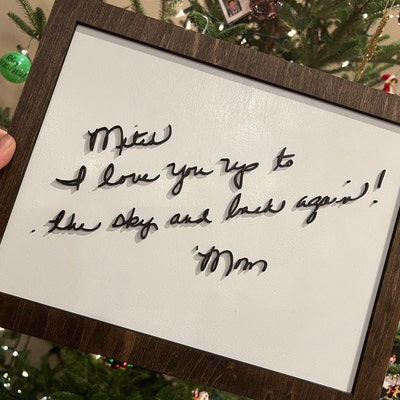 Mitch
I love you up to
the sky and back again!
Mom